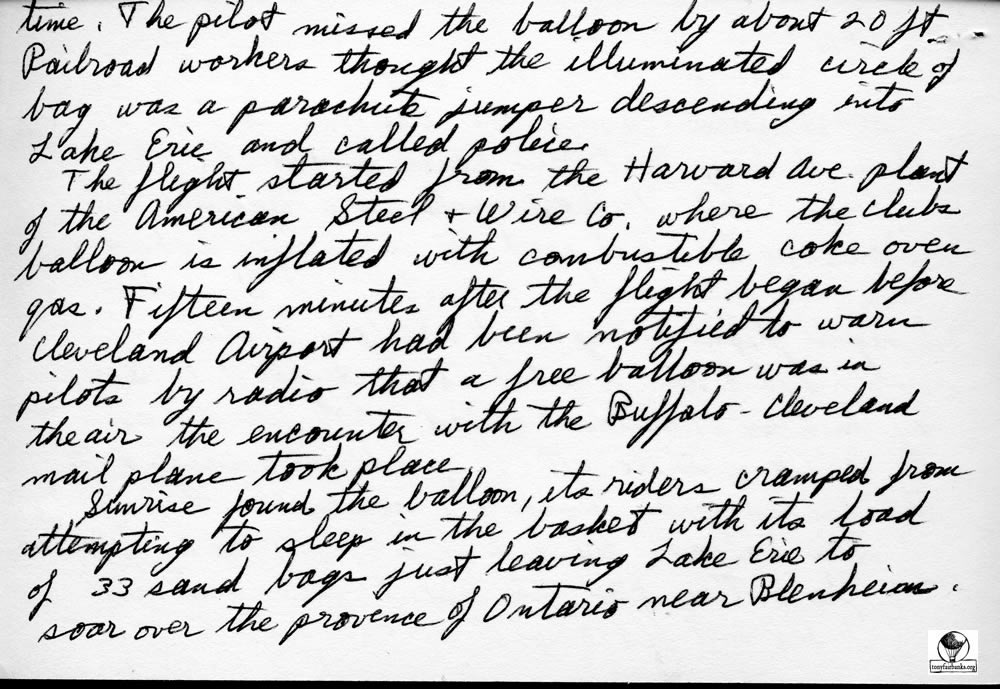 time. The pilot missed the balloon by about 20 ft.
Railroad workers thought the illuminated circle of
bag was a parachute jumper descending into
Lake Erie and called police.
The flight started from the Harvard Ave. plant
of the American Steel + Wire Co. where the clubs
balloon is inflated with combustible coke oven
gas. Fifteen minutes after the flight began before
Cleveland Airport had been notified to warn
pilots by radio that a free balloon was in
the air the encounter with the Buffalo - Cleveland
mail plane took place.
Sunrise found the balloon, its riders cramped from
attempting to sleep in the basket with its load
of 33 sand bags just leaving Lake Erie to
soar over the provence of Ontario near Blenheim.
tonyfairbanks.org